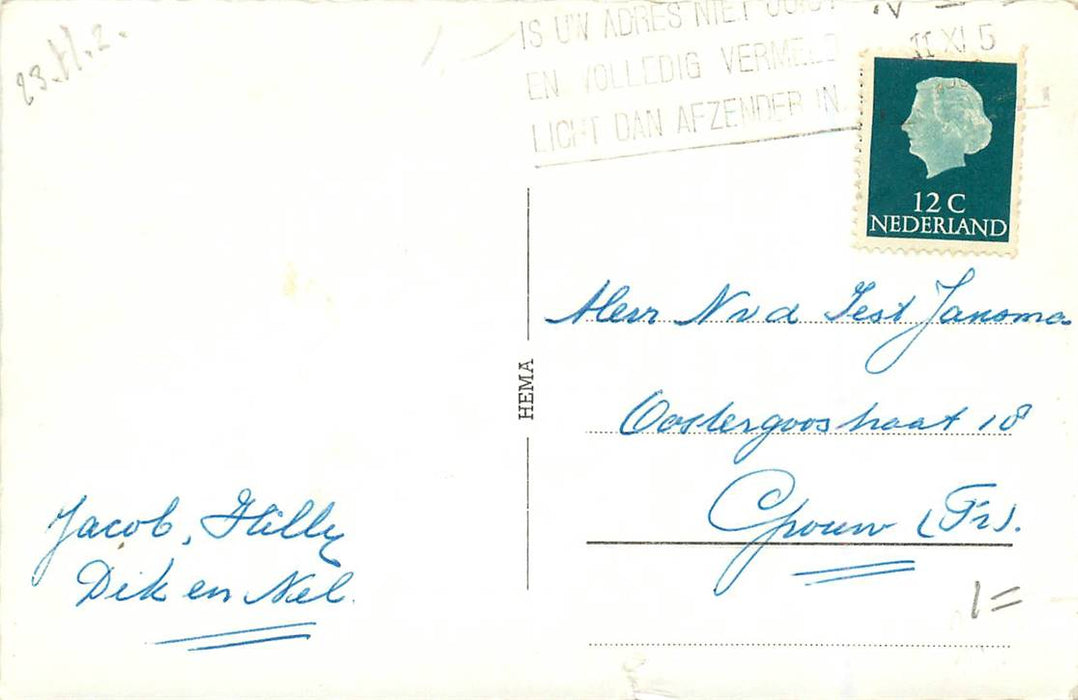 23.11.2.
IS UW ADRES NIET JUIST
EN VOLLEDIG VERMELD
LICHT DAN AFZENDER IN.
II XI 5
12 C
NEDERLAND
HEMA
Heer N v d Jansma
Oostergoostraat 18
Grouw (Fr).
Jacob, Hilly
Dik en Nel.
1=